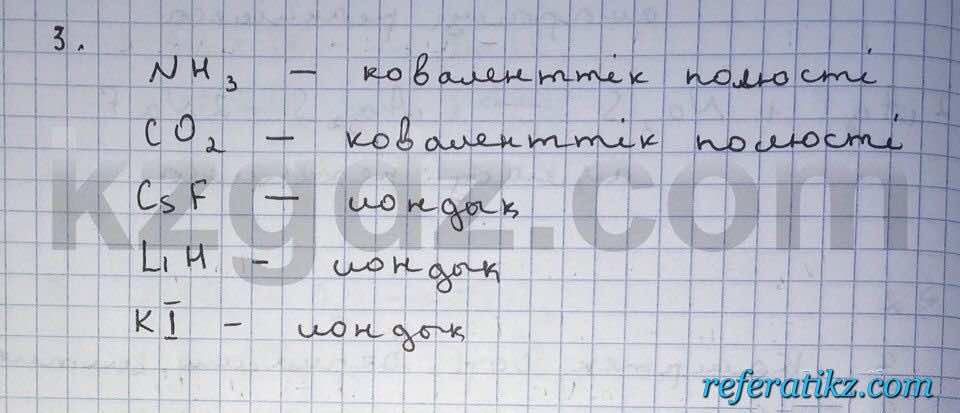 3.
NH₃ – коваленттік полюсті
CO₂ – коваленттік полюсті
CsF – иондық
LiH – иондық
KI – иондық
kzgdz.com
referatikz.com